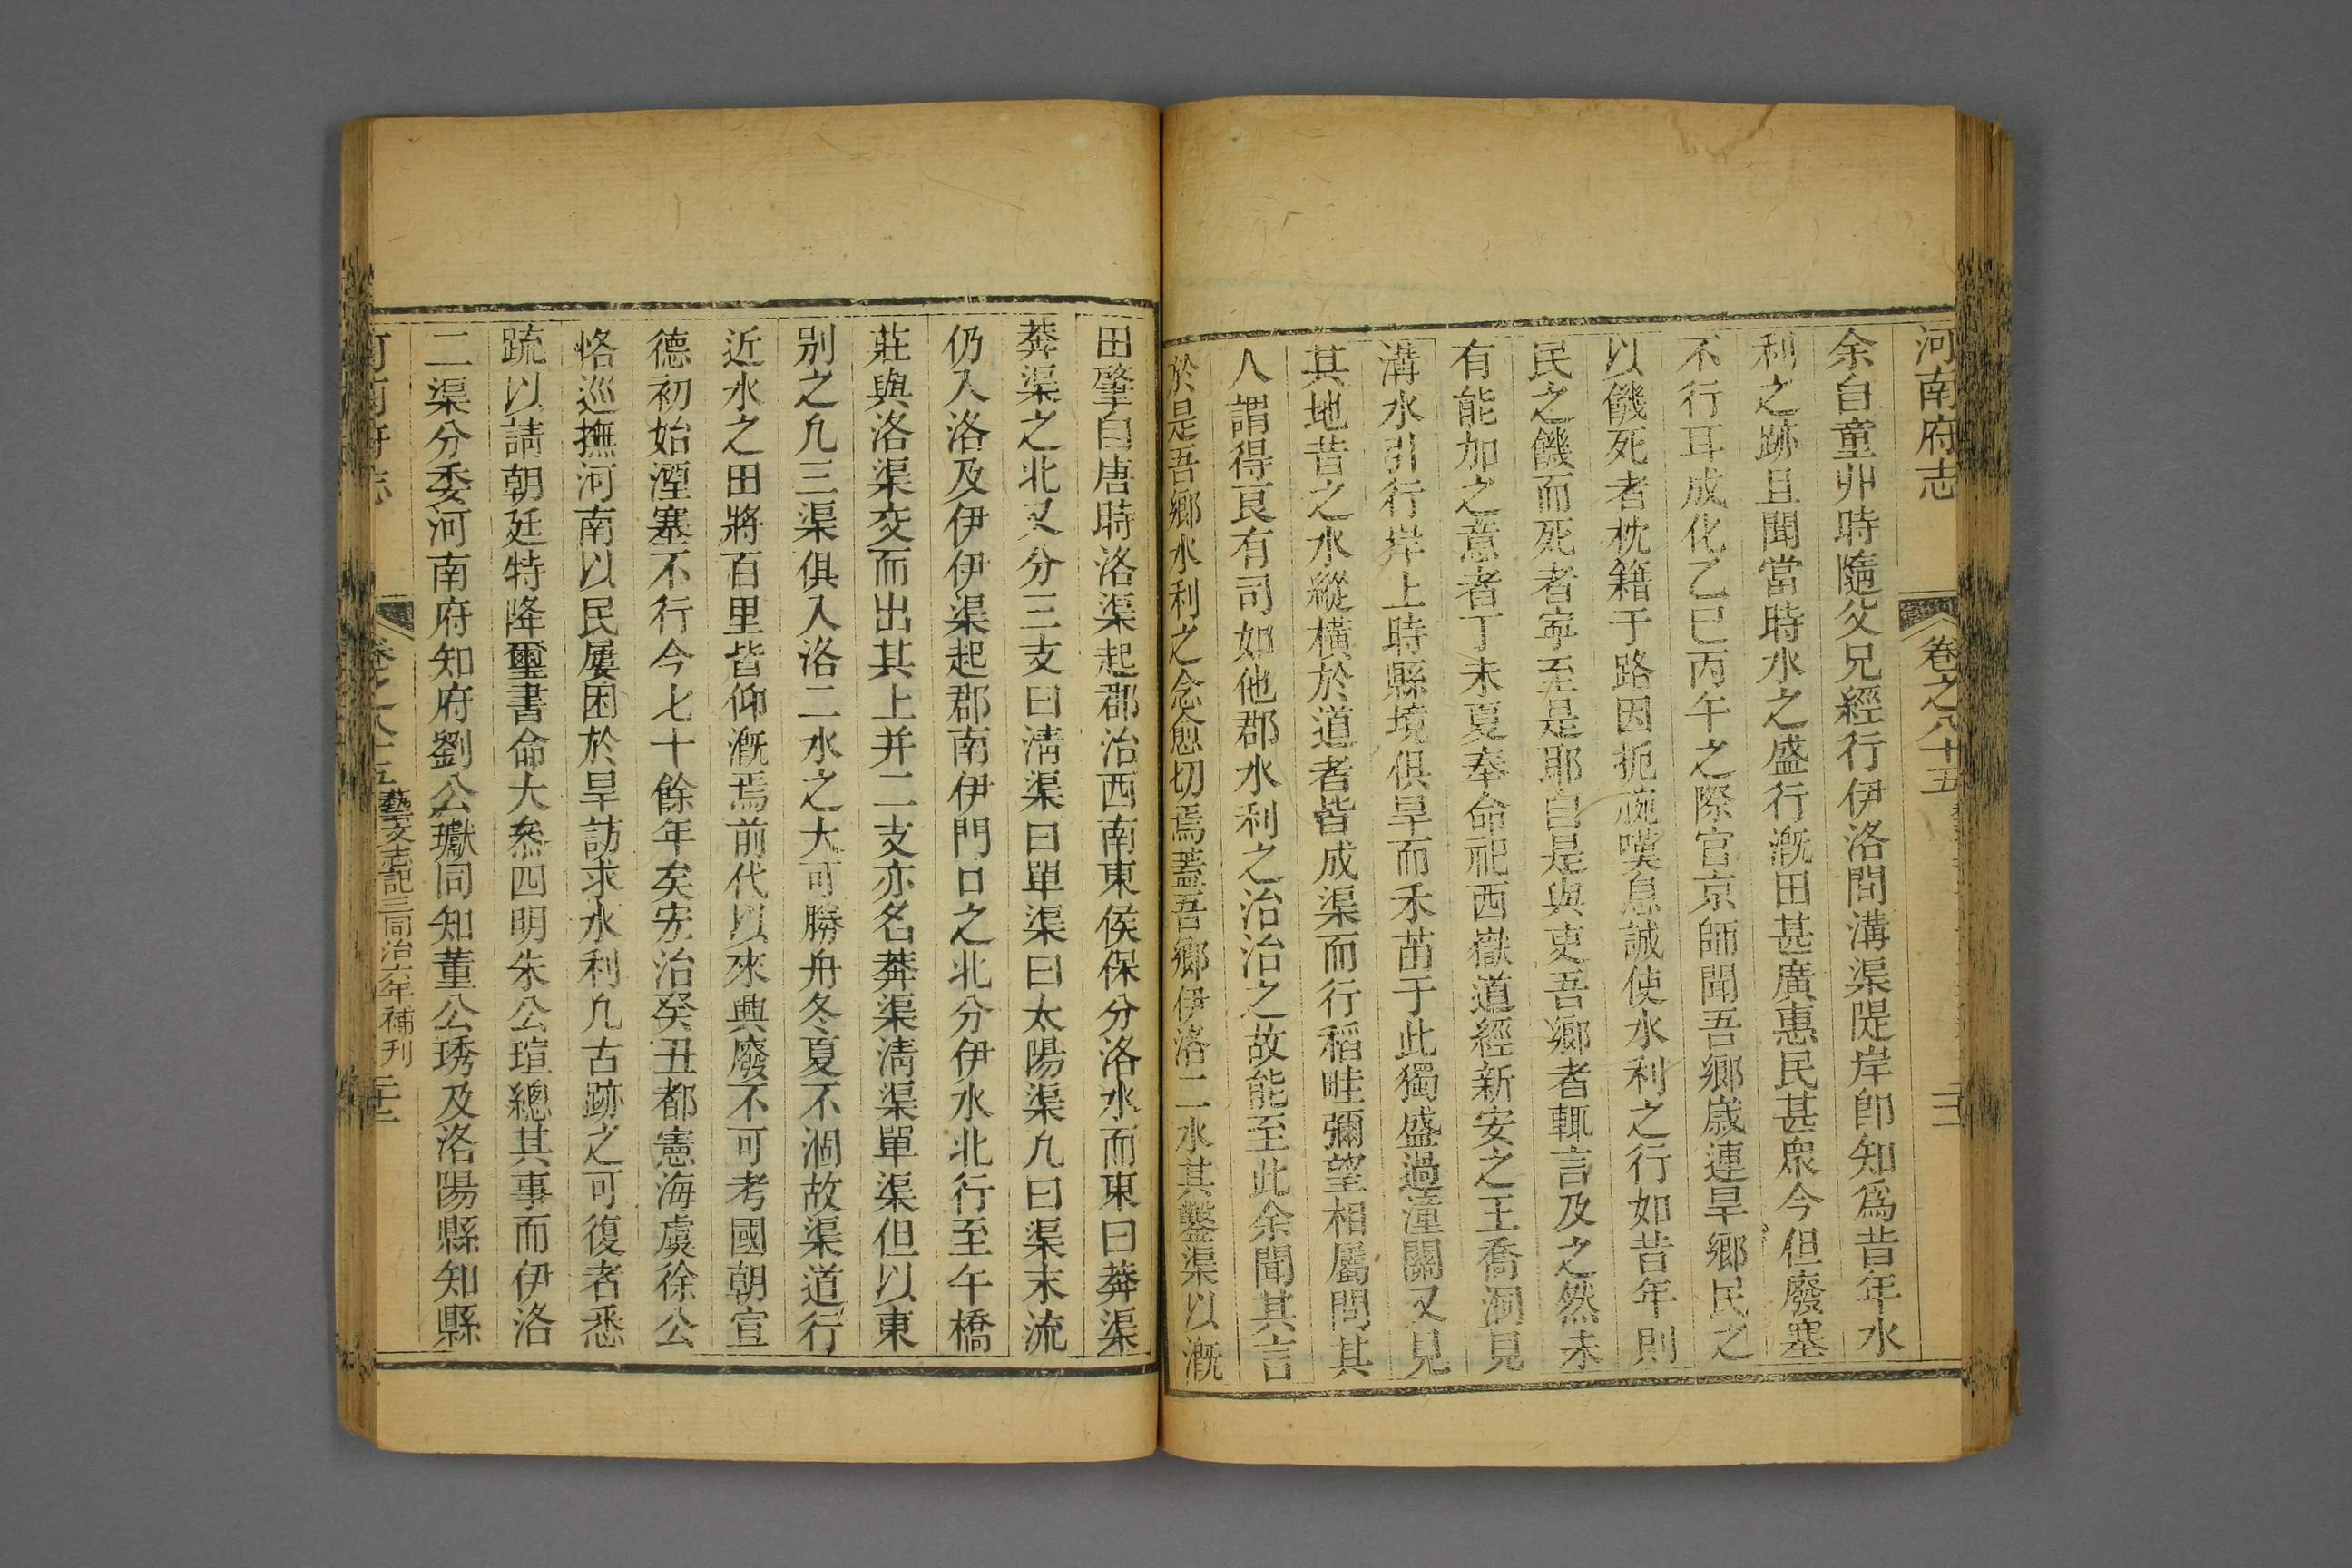 河南府志 卷之八十五
余自童丱時隨父兄經行伊洛間溝渠隄岸卽知爲昔年水
利之跡且聞當時水之盛行漑田甚廣惠民甚衆今但廢塞
不行耳成化乙巳丙午之際官京師聞吾鄉歲連旱鄉民之
以饑死者枕籍于路因扼腕嘆息誠使水利之行如昔年則
民之饑而死者寜至是耶自是與吏吾鄉者輒言及之然未
有能加之意者丁未夏奉命祀西嶽道經新安之王喬洞見
溝水引行岸上時縣境俱旱而禾苗于此獨盛過潼關又見
其地昔之水縱橫於道者皆成渠而行稻畦彌望相屬問其
人謂得良有司如他郡水利之治治之故能至此余聞其言
於是吾鄉水利之念愈切焉蓋吾鄉伊洛二水其鑿渠以漑
田肇自唐時洛渠起郡治西南東侯保分洛水而東曰莾渠
莾渠之北又分三支曰淸渠曰單渠曰太陽渠凢曰渠末流
仍入洛及伊伊渠起郡南伊門口之北分伊水北行至午橋
莊與洛渠交而出其上并二支亦名莾渠淸渠單渠但以東
别之凢三渠俱入洛二水之大可勝舟冬夏不涸故渠道行
近水之田將百里皆仰漑焉前代以來興廢不可考國朝宣
德初始湮塞不行今七十餘年矣宏治癸丑都憲海虞徐公
恪巡撫河南以民屢困於旱訪求水利凢古跡之可復者悉
䟽以請朝廷特降璽書命大叅四明朱公瑄總其事而伊洛
二渠分委河南府知府劉公瓛同知董公琇及洛陽縣知縣
河南府志 卷之八十五 藝文志記三同治六年補刋